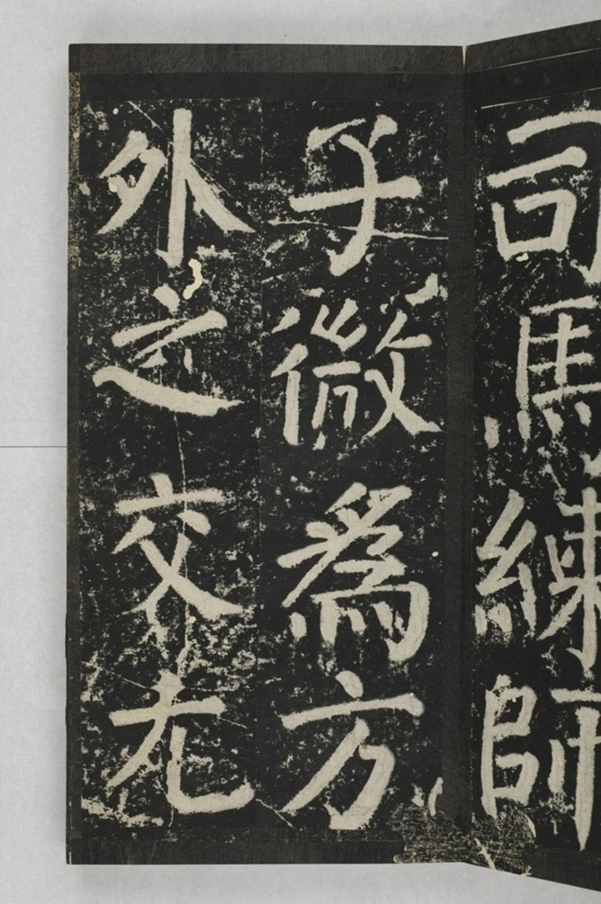 司馬練師
子微為方
外之交尤